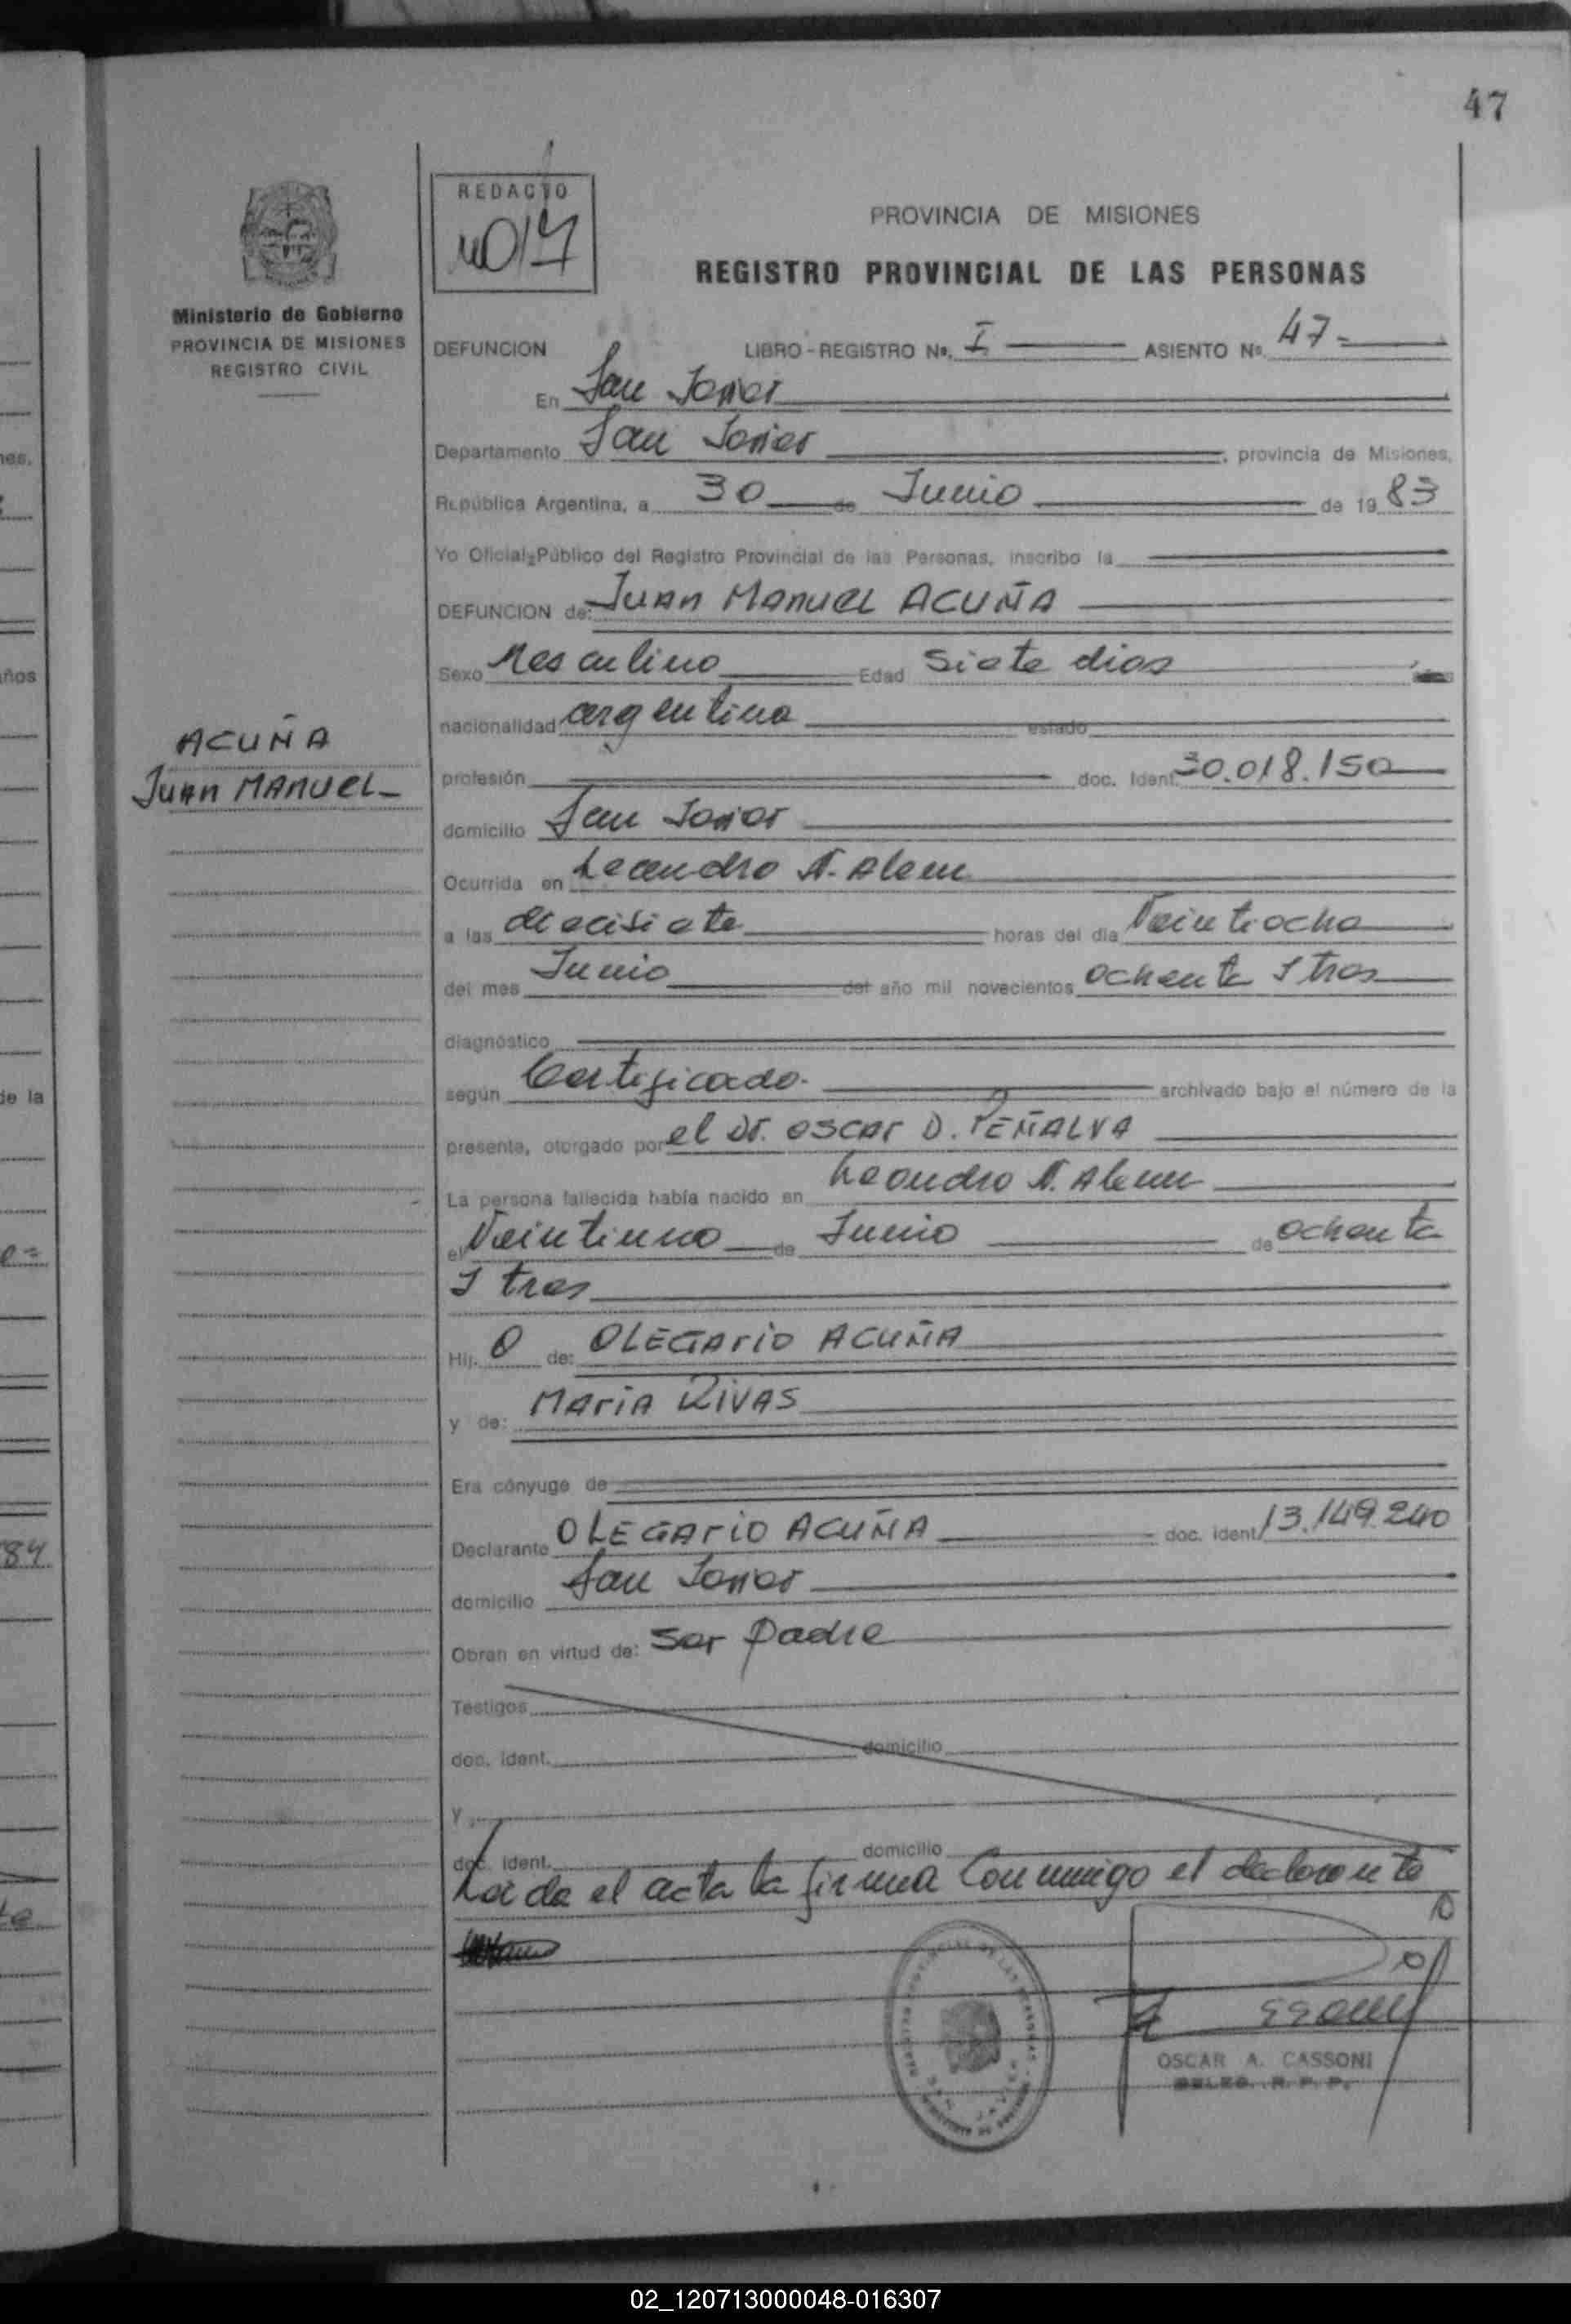 47
REDACTO
Ministerio de Gobierno
PROVINCIA DE MISIONES
REGISTRO CIVIL
PROVINCIA DE MISIONES
REGISTRO PROVINCIAL DE LAS PERSONAS
DEFUNCION LIBRO - REGISTRO Nº. I ASIENTO Nº. 47-
En San Javier
Departamento San Javier, provincia de Misiones,
República Argentina, a 30 de Junio de 1983
Yo Oficial Público del Registro Provincial de las Personas, inscribo la
DEFUNCION de: Juan Manuel ACUÑA
Sexo Masculino Edad Siete dias
nacionalidad argentina estado
ACUÑA
Juan MANUEL-
profesión doc. Ident. 30.018.150
domicilio San Javier
Ocurrida en Leandro N. Alem
a las diecisiete horas del día Veintiocho
del mes Junio del año mil novecientos ochenta y tres
diagnóstico
según Certificado. archivado bajo el número de la
presente, otorgado por el Dr. OSCAR D. PEÑALVA
La persona fallecida había nacido en Leandro N. Alem
el Veintiuno de Junio de ochenta
y tres
Hij. o de: OLEGARIO ACUÑA
y de: MARIA RIVAS
Era cónyuge de
Declarante OLEGARIO ACUÑA doc. ident. 13.149.240
domicilio San Javier
Obran en virtud de: Ser padre
Testigos
doc. ident. domicilio
y
doc. ident. domicilio
Leida el acta la firma Conmigo el declarante
OSCAR A. CASSONI
DELEG. R. P. P.
02_120713000048-016307